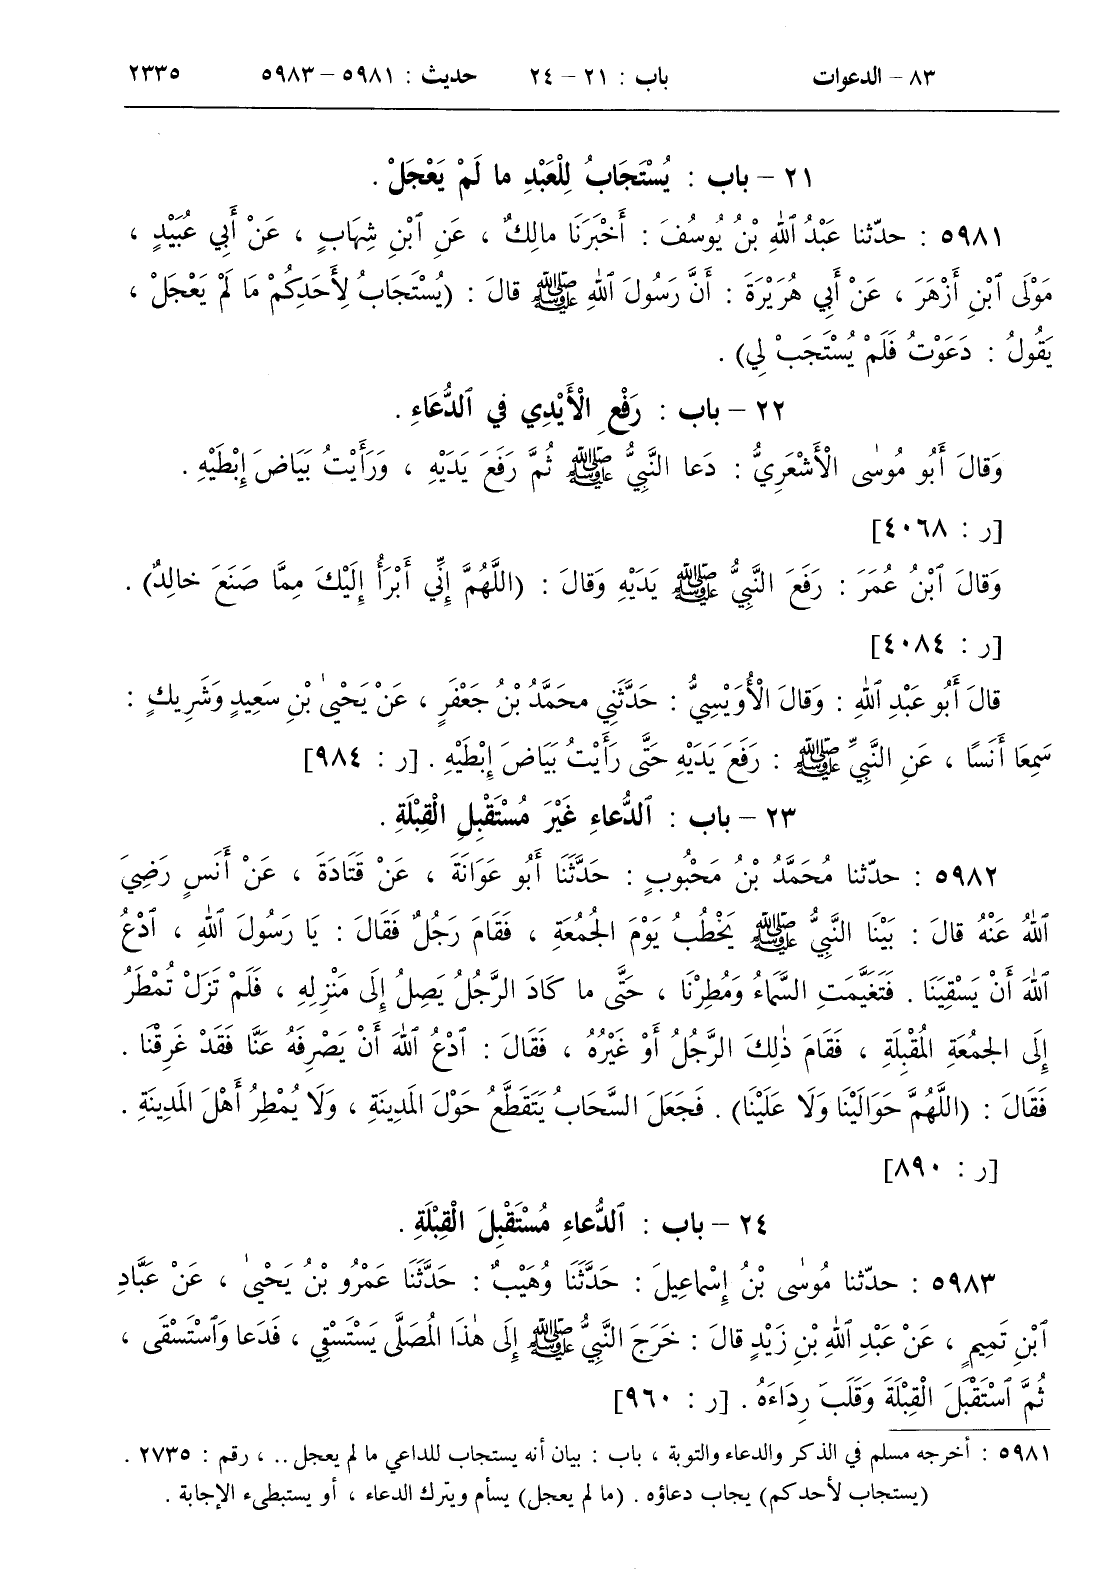 ٨٣ – الدعوات باب : ٢١ – ٢٤ حديث : ٥٩٨١ – ٥٩٨٣ ٢٣٣٥
٢١ – باب : يُسْتَجَابُ لِلْعَبْدِ ما لَمْ يَعْجَلْ .
٥٩٨١ : حدّثنا عَبْدُ ٱللهِ بْنُ يُوسُفَ : أَخْبَرَنَا مالِكٌ ، عَنِ ٱبْنِ شِهَابٍ ، عَنْ أَبِي عُبَيْدٍ ،
مَوْلَى ٱبْنِ أَزْهَرَ ، عَنْ أَبِي هُرَيْرَةَ : أَنَّ رَسُولَ ٱللهِ ﷺ قالَ : (يُسْتَجَابُ لِأَحَدِكُمْ مَا لَمْ يَعْجَلْ ،
يَقُولُ : دَعَوْتُ فَلَمْ يُسْتَجَبْ لِي) .
٢٢ – باب : رَفْعِ الْأَيْدِي في ٱلدُّعَاءِ .
وَقالَ أَبُو مُوسٰى الْأَشْعَرِيُّ : دَعا النَّبِيُّ ﷺ ثُمَّ رَفَعَ يَدَيْهِ ، وَرَأَيْتُ بَيَاضَ إِبْطَيْهِ .
[ر : ٤٠٦٨]
وَقالَ ٱبْنُ عُمَرَ : رَفَعَ النَّبِيُّ ﷺ يَدَيْهِ وَقالَ : (اللَّهُمَّ إِنِّي أَبْرَأُ إِلَيْكَ مِمَّا صَنَعَ خالِدٌ) .
[ر : ٤٠٨٤]
قالَ أَبُو عَبْدِ ٱللهِ : وَقالَ الْأُوَيْسِيُّ : حَدَّثَنِي محَمَّدُ بْنُ جَعْفَرٍ ، عَنْ يَحْيىٰ بْنِ سَعِيدٍ وَشَرِيكٍ :
سَمِعَا أَنَسًا ، عَنِ النَّبِيِّ ﷺ : رَفَعَ يَدَيْهِ حَتَّى رَأَيْتُ بَيَاضَ إِبْطَيْهِ . [ر : ٩٨٤]
٢٣ – باب : ٱلدُّعاءِ غَيْرَ مُسْتَقْبِلِ الْقِبْلَةِ .
٥٩٨٢ : حدّثنا مُحَمَّدُ بْنُ مَحْبُوبٍ : حَدَّثَنَا أَبُو عَوَانَةَ ، عَنْ قَتَادَةَ ، عَنْ أَنَسٍ رَضِيَ
ٱللهُ عَنْهُ قالَ : بَيْنَا النَّبِيُّ ﷺ يَخْطُبُ يَوْمَ الجُمُعَةِ ، فَقَامَ رَجُلٌ فَقَالَ : يَا رَسُولَ ٱللهِ ، ٱدْعُ
ٱللهَ أَنْ يَسْقِيَنَا . فَتَغَيَّمَتِ السَّمَاءُ وَمُطِرْنَا ، حَتَّى ما كَادَ الرَّجُلُ يَصِلُ إِلَى مَنْزِلِهِ ، فَلَمْ تَزَلْ تُمْطَرُ
إِلَى الجُمُعَةِ المُقْبِلَةِ ، فَقَامَ ذٰلِكَ الرَّجُلُ أَوْ غَيْرُهُ ، فَقَالَ : ٱدْعُ ٱللهَ أَنْ يَصْرِفَهُ عَنَّا فَقَدْ غَرِقْنَا .
فَقَالَ : (اللَّهُمَّ حَوَالَيْنَا وَلَا عَلَيْنَا) . فَجَعَلَ السَّحَابُ يَتَقَطَّعُ حَوْلَ المَدِينَةِ ، وَلَا يُمْطِرُ أَهْلَ المَدِينَةِ .
[ر : ٨٩٠]
٢٤ – باب : ٱلدُّعاءِ مُسْتَقْبِلَ الْقِبْلَةِ .
٥٩٨٣ : حدّثنا مُوسٰى بْنُ إِسْماعِيلَ : حَدَّثَنَا وُهَيْبٌ : حَدَّثَنَا عَمْرُو بْنُ يَحْيىٰ ، عَنْ عَبَّادِ
ٱبْنِ تَمِيمٍ ، عَنْ عَبْدِ ٱللهِ بْنِ زَيْدٍ قالَ : خَرَجَ النَّبِيُّ ﷺ إِلَى هٰذَا المُصَلَّى يَسْتَسْقِي ، فَدَعا وَٱسْتَسْقَى ،
ثُمَّ ٱسْتَقْبَلَ الْقِبْلَةَ وَقَلَبَ رِدَاءَهُ . [ر : ٩٦٠]
٥٩٨١ : أخرجه مسلم في الذكر والدعاء والتوبة ، باب : بيان أنه يستجاب للداعي ما لم يعجل .. ، رقم : ٢٧٣٥ .
(يستجاب لأحدكم) يجاب دعاؤه . (ما لم يعجل) يسأم ويترك الدعاء ، أو يستبطىء الإجابة .